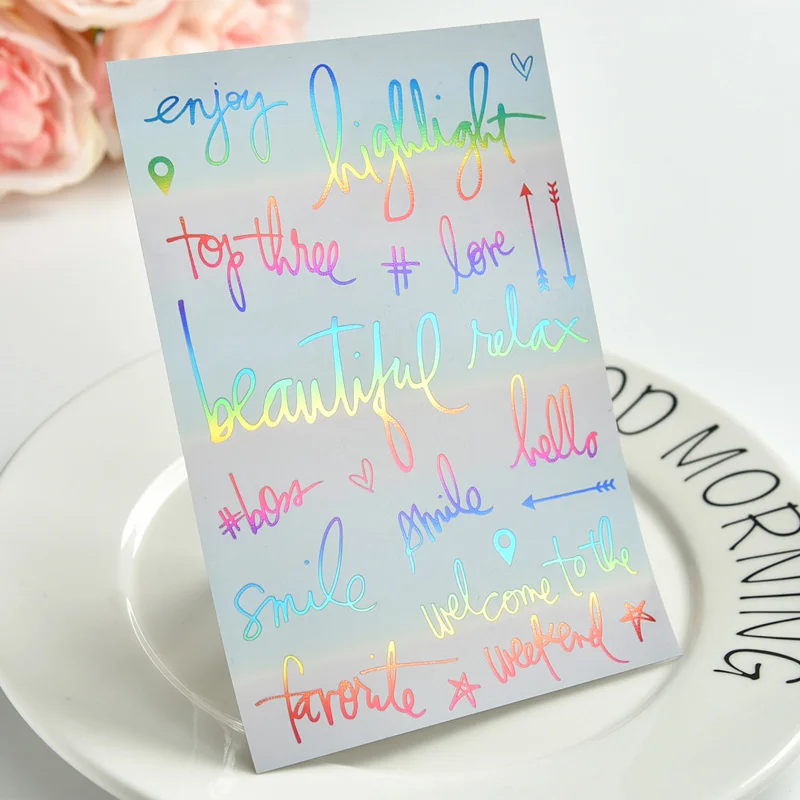 enjoy
highlight
top three # love
beautiful relax
hello
#boss
smile
smile
welcome to the
weekend
favorite
OD MORNING